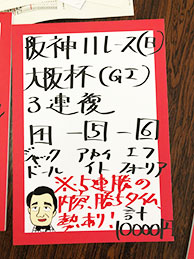 阪神11レース(日)
大阪杯(GI)
3連複
4-5-6
ジャック アカイ エフ
ドール イト フォーリア
※5連勝の
内容、勝ちタイム
勢あり!
計
10000円